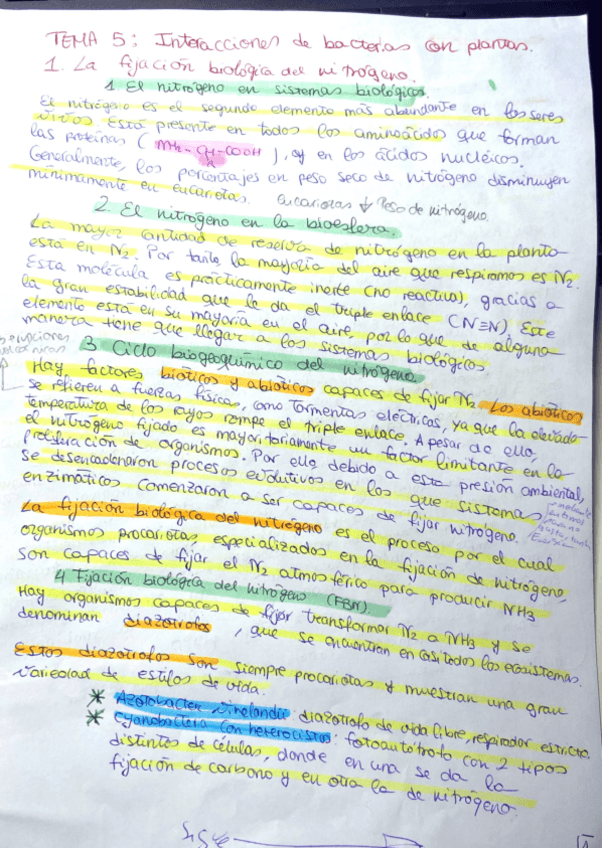 TEMA 5: Interacciones de bacterias con plantas.
1. La fijación biológica del nitrógeno.
1 El nitrógeno en sistemas biológicos.
El nitrógeno es el segundo elemento más abundante en los seres
vivos. Está presente en todos los aminoácidos que forman
las proteínas (NH2-CH-COOH), y en los ácidos nucléicos.
R
Generalmente, los porcentajes en peso seco de nitrógeno disminuyen
mínimamente en eucariotas. Eucariotas ↓ Peso de nitrógeno.
2. El nitrógeno en la bioesfera.
La mayor cantidad de reserva de nitrógeno en la planta
está en N2. Por tanto la mayoría del aire que respiramos es N2.
Esta molécula es prácticamente inerte (no reactiva), gracias a
la gran estabilidad que le da el triple enlace (N≡N) Este
elemento está en su mayoría en el aire, por lo que de alguna
manera tiene que llegar a los sistemas biológicos.
3 Ciclo biogeoquímico del nitrógeno
Hay factores bióticos y abióticos capaces de fijar N2 Los abióticos
se refieren a fuerzas físicas, como tormentas eléctricas, ya que la elevada
temperatura de los rayos rompe el triple enlace. A pesar de ello,
el nitrógeno fijado es mayoritariamente un factor limitante en la
proliferación de organismos. Por ello, debido a esta presión ambiental,
se desencadenaron procesos evolutivos en los que sistemas
enzimáticos comenzaron a ser capaces de fijar nitrógeno.
La fijación biológica del nitrógeno es el proceso por el cual
organismos procariotas, especializados en la fijación de nitrógeno,
son capaces de fijar el N2 atmosférico para producir NH3
4 Fijación biológica del nitrógeno (FBN).
Hay organismos capaces de fijar transformar N2 a NH3 y se
denominan diazótrofos, que se encuentran en casi todos los ecosistemas.
Estos diazótrofos son siempre procariotas y muestran una gran
variedad de estilos de vida.
* Azotobacter vinelandii: diazótrofo de vida libre, respirador estricto.
* Cyanobacteria con heterocistos: fotoautótrofo con 2 tipos
distintos de células, donde en una se da la
fijación de carbono y en otra la de nitrógeno.
Sigue
1